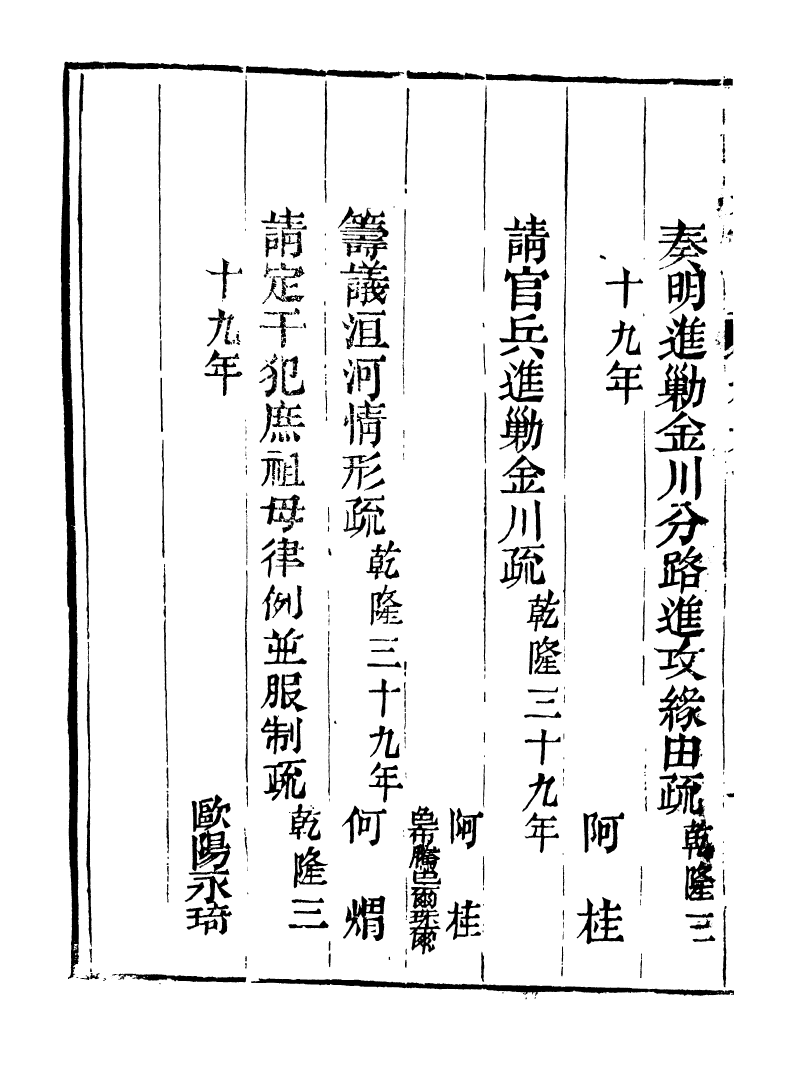 奏明進勦金川分路進攻緣由疏乾隆三
十九年　阿桂
請官兵進勦金川疏乾隆三十九年
阿桂
色布騰巴爾珠爾
籌議洹河情形疏乾隆三十九年　何煟
請定干犯庶祖母律例並服制疏乾隆三
十九年　歐陽永琦